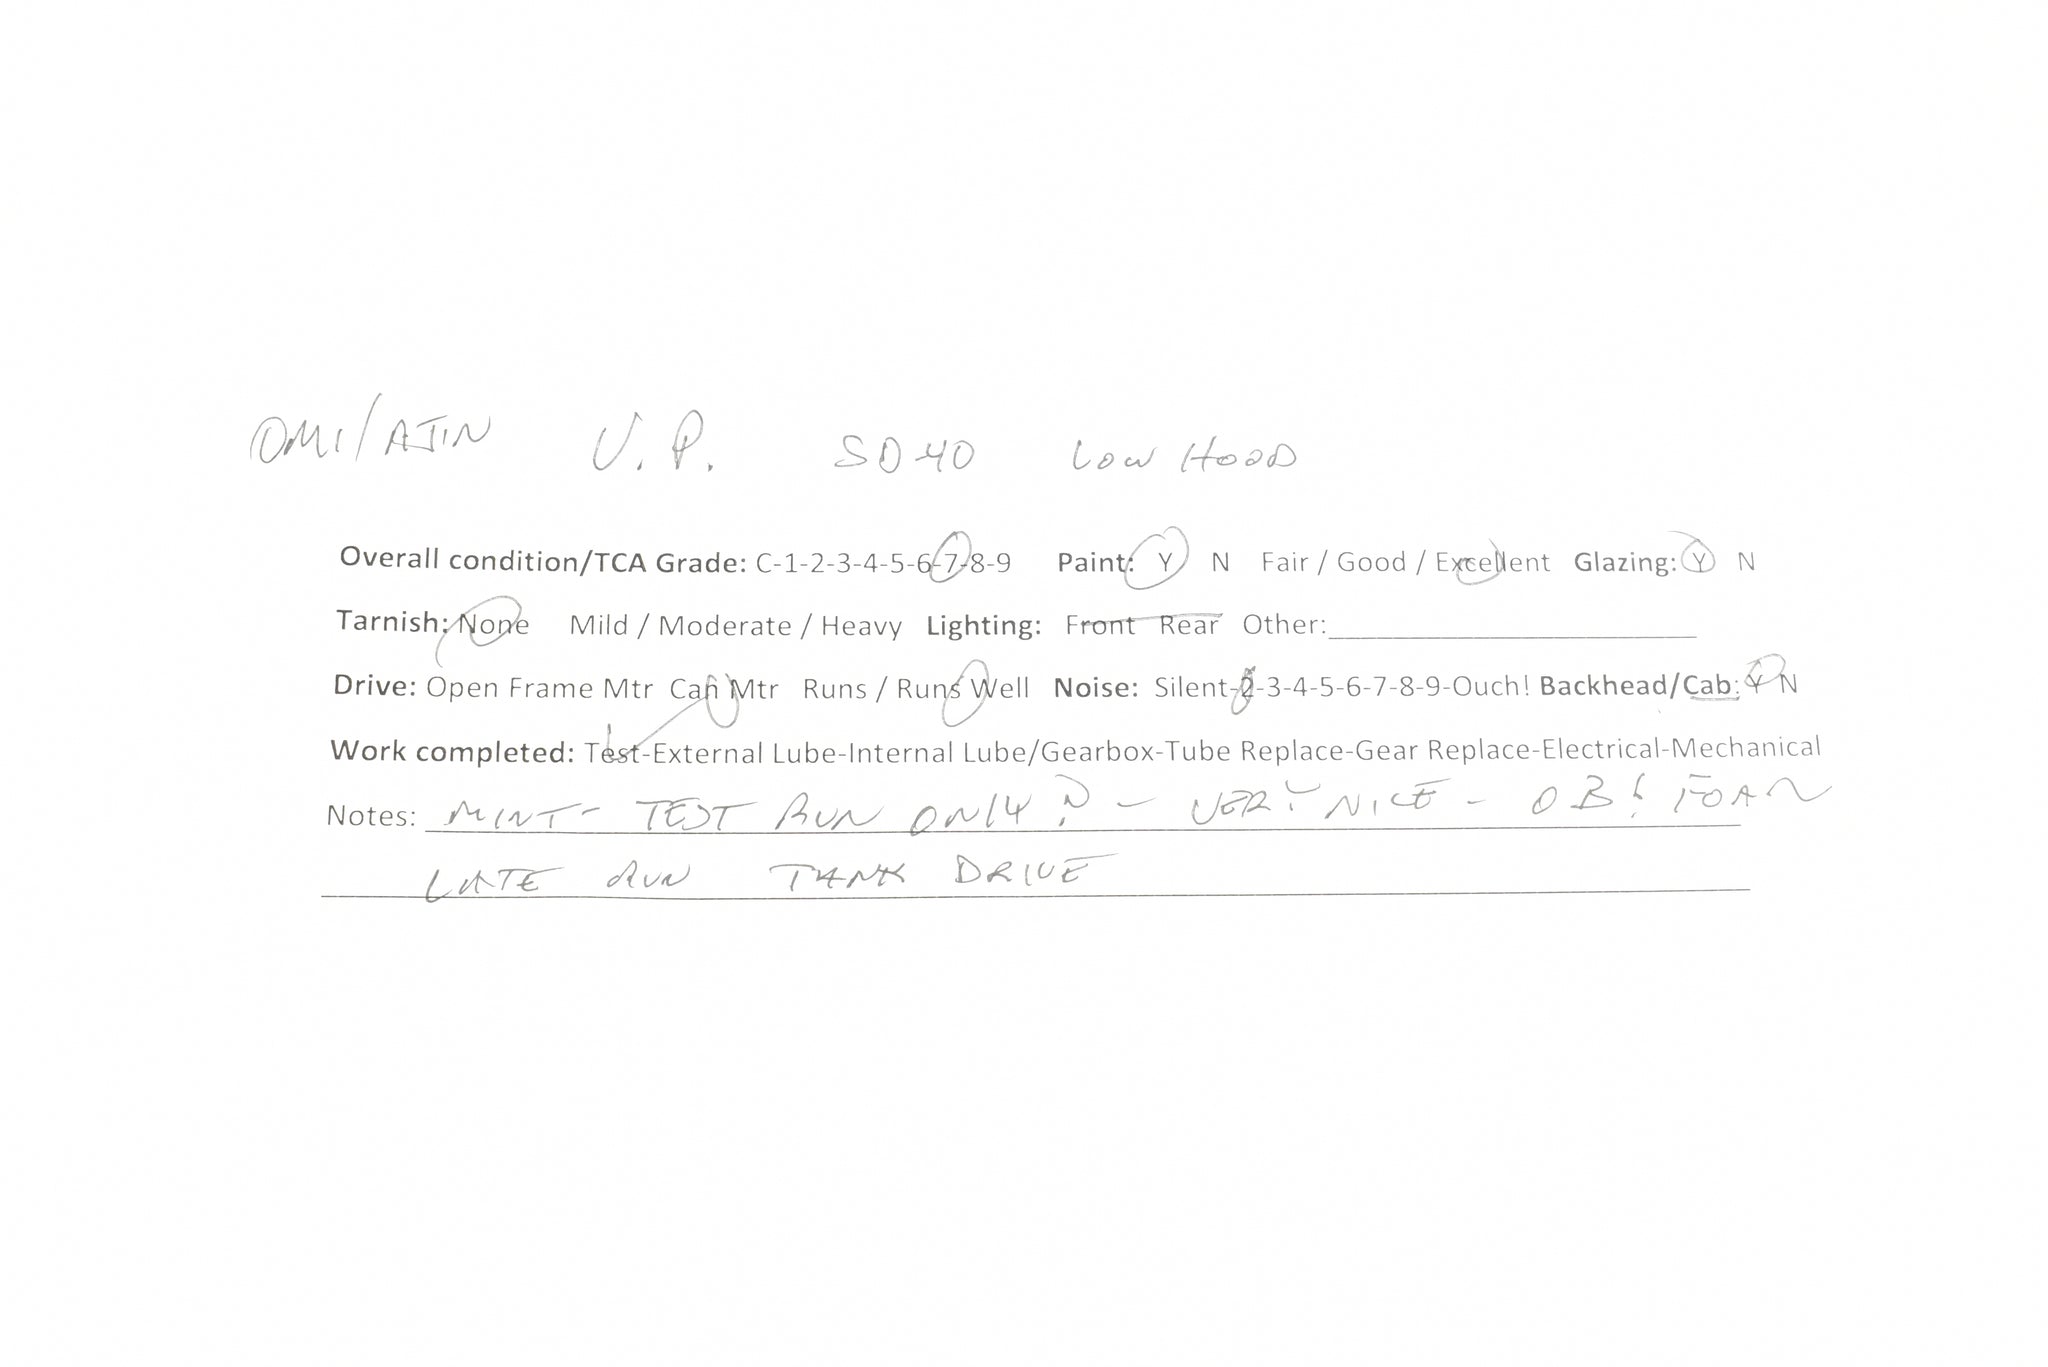 OMI/AJIN U.P. SD40 LOW HOOD
Overall condition/TCA Grade: C-1-2-3-4-5-6-7-8-9 Paint: Y N Fair / Good / Excellent Glazing: Y N
Tarnish: None Mild / Moderate / Heavy Lighting: Front Rear Other:
Drive: Open Frame Mtr Can Mtr Runs / Runs Well Noise: Silent-2-3-4-5-6-7-8-9-Ouch! Backhead/Cab: Y N
Work completed: Test-External Lube-Internal Lube/Gearbox-Tube Replace-Gear Replace-Electrical-Mechanical
Notes: MINT - TEST RUN ONLY? - VERY NICE - OB & FOAM
LATE RUN TANK DRIVE